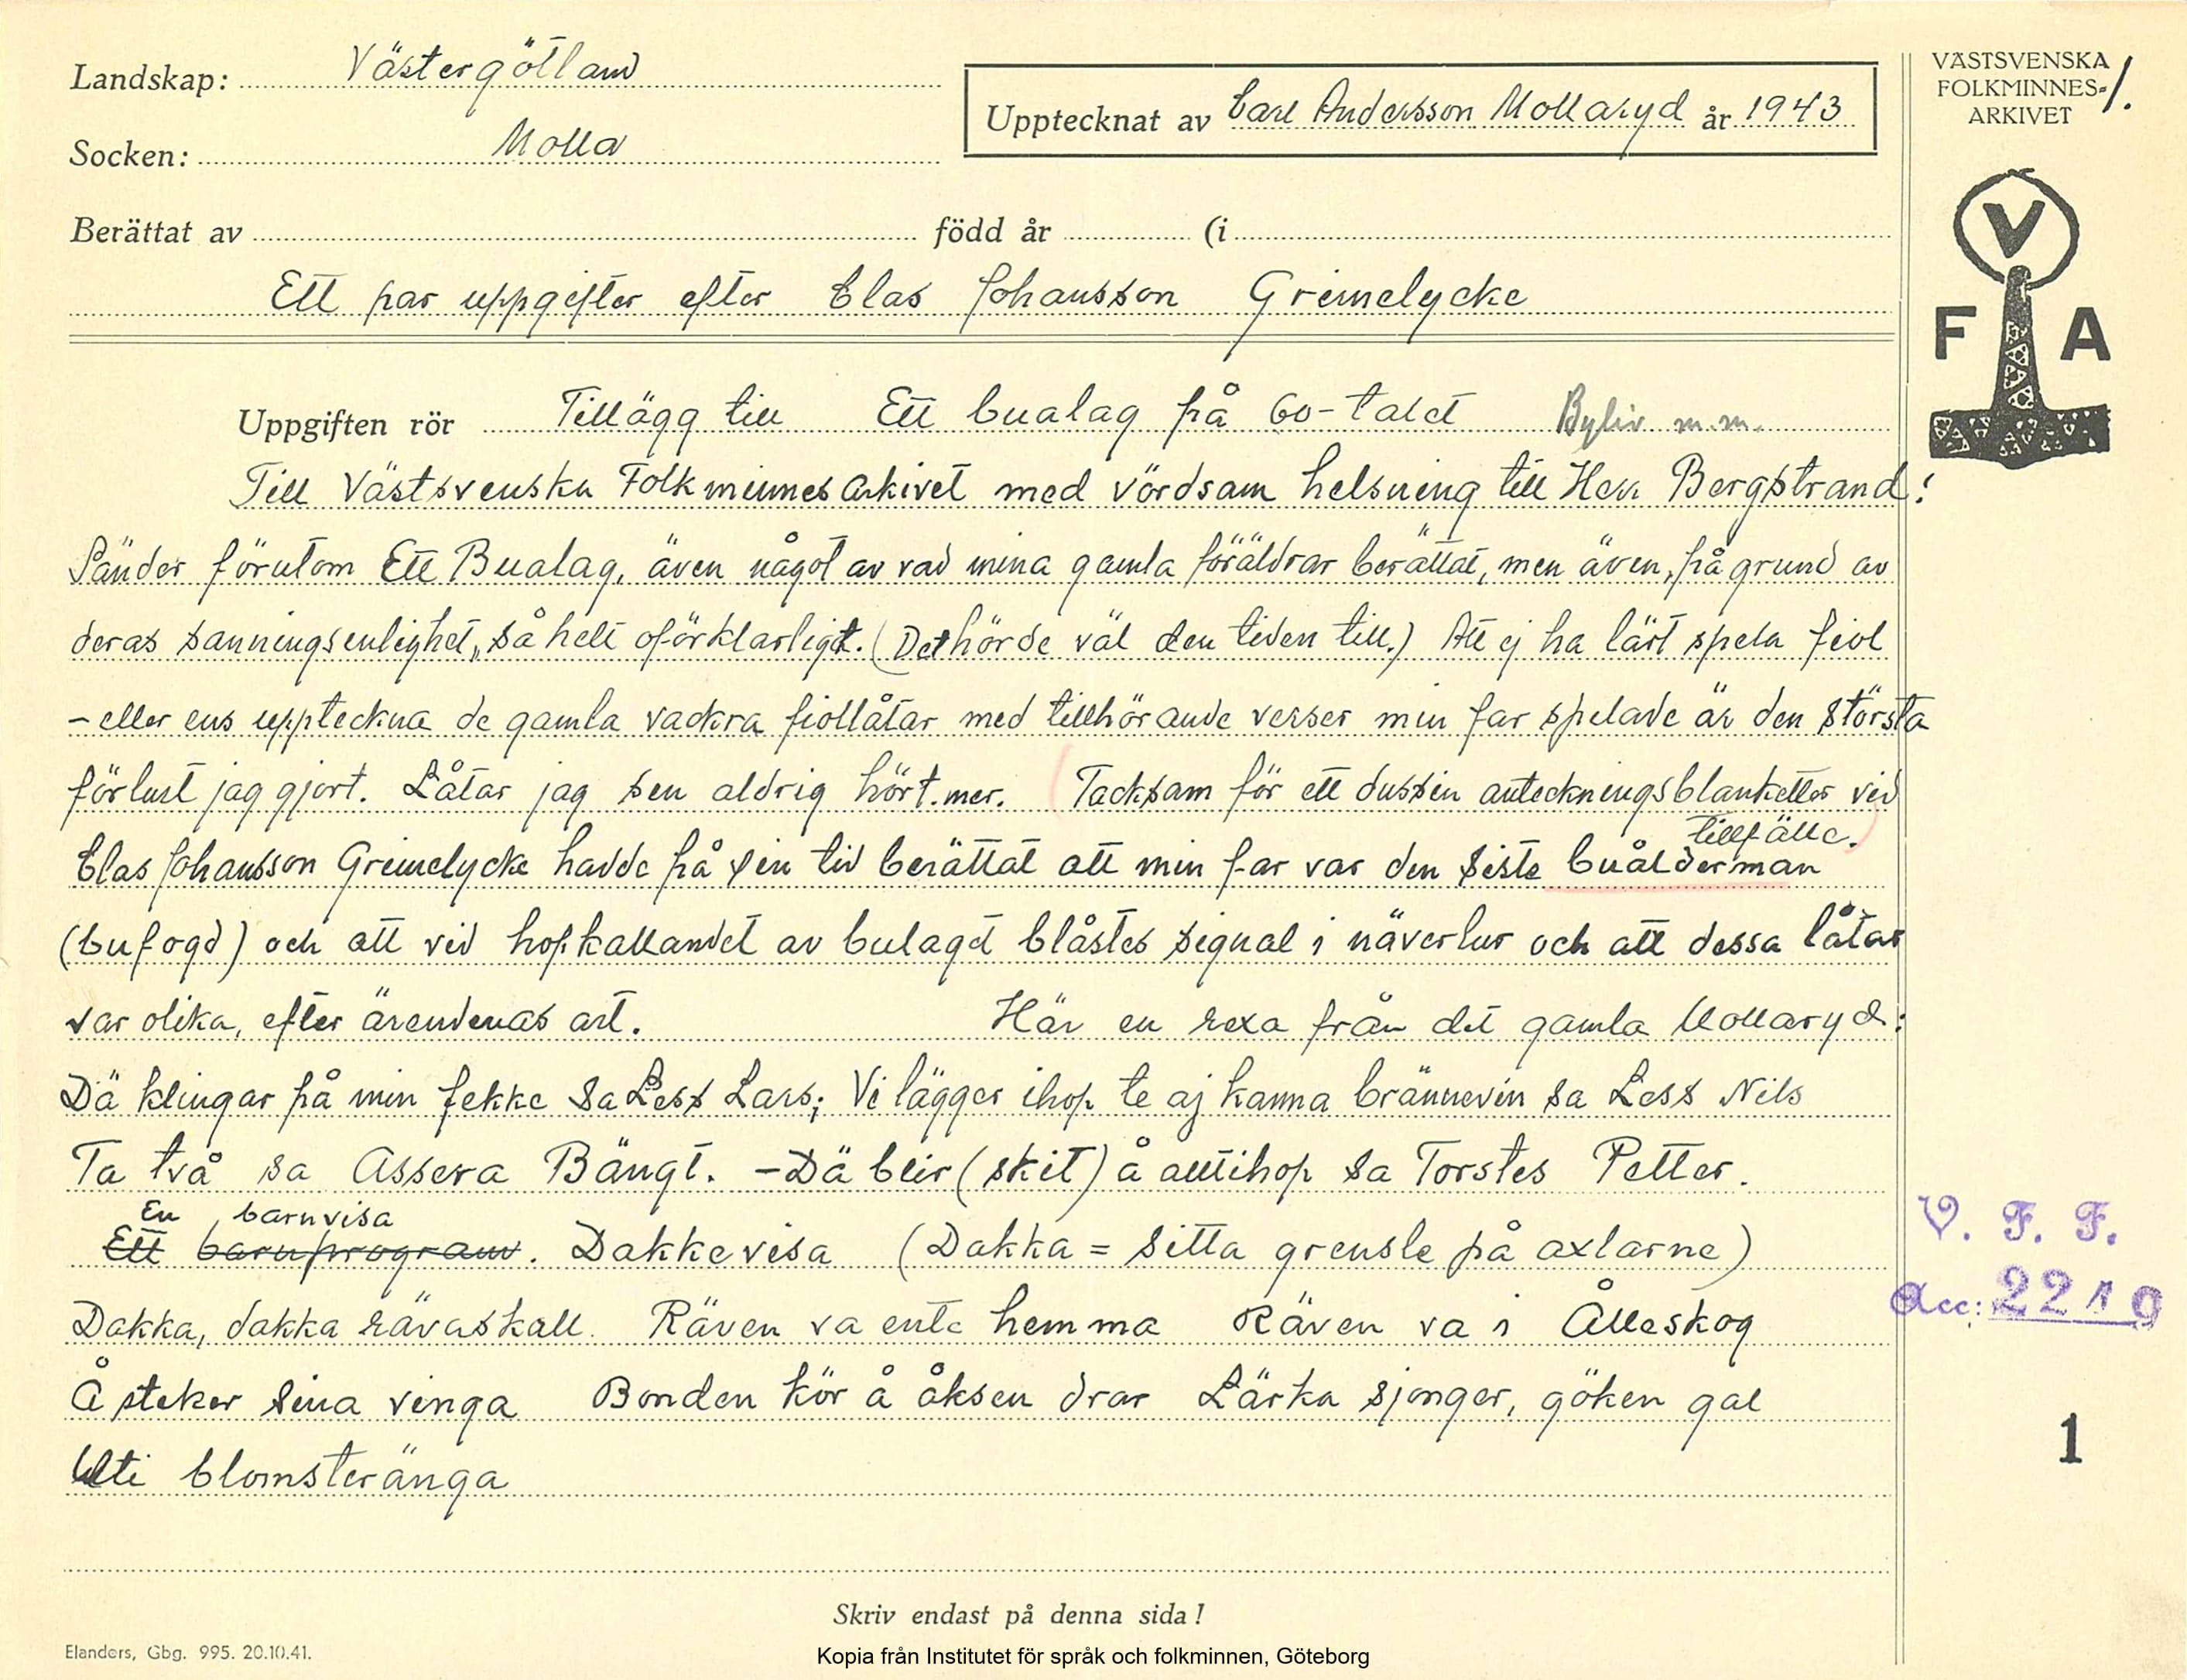 Landskap: Västergötland
Socken: Molla
Upptecknat av Carl Andersson Mollaryd år 1943
VÄSTSVENSKA
FOLKMINNES-
ARKIVET
1.
V
F A
Berättat av född år (i
Ett par uppgifter efter Clas Johansson Grimelycke
Uppgiften rör Tillägg till Ett bualag på 60-talet Byliv m.m.
Till Västsvenska Folkminnesarkivet med vördsam helsning till Herr Bergstrand!
Sänder förutom Ett Bualag, även något av vad mina gamla föräldrar berättat, men även, på grund av
deras sanningsenlighet, så helt oförklarligt. (Det hörde väl den tiden till.) Att ej ha lärt spela fiol
- eller ens uppteckna de gamla vackra fiollåtar med tillhörande verser min far spelade är den största
förlust jag gjort. Låtar jag sen aldrig hört mer. Tacksam för ett dussin anteckningsblanketter vid
tillfälle.
Clas Johansson Grimelycke hadde på sin tid berättat att min far var den siste buålderman
(bufogd) och att vid hopkallandet av bulaget blåstes signal i näverlur och att dessa låtar
var olika, efter ärendenas art. Här en rexa från det gamla Mollaryd:
Dä klingar på min fekke sa Less Lars; Vi lägger ihop te aj kanna brännevin sa Less Nils
Ta två sa Assera Bängt. - Dä blir (skit) å alltihop sa Torstes Petter.
En barnvisa
Ett barnprogram. Dakkevisa (Dakka = sitta grensle på axlarne)
Dakka, dakka rävaskall. Räven va ente hemma Räven va i Ålleskog
Å steker sina vinga Bonden kör å åksen drar Lärka sjonger, göken gal
Uti blomsteränga
V. F. F.
Acc: 2219
1
Skriv endast på denna sida!
Elanders, Gbg. 995. 20.10.41.
Kopia från Institutet för språk och folkminnen, Göteborg